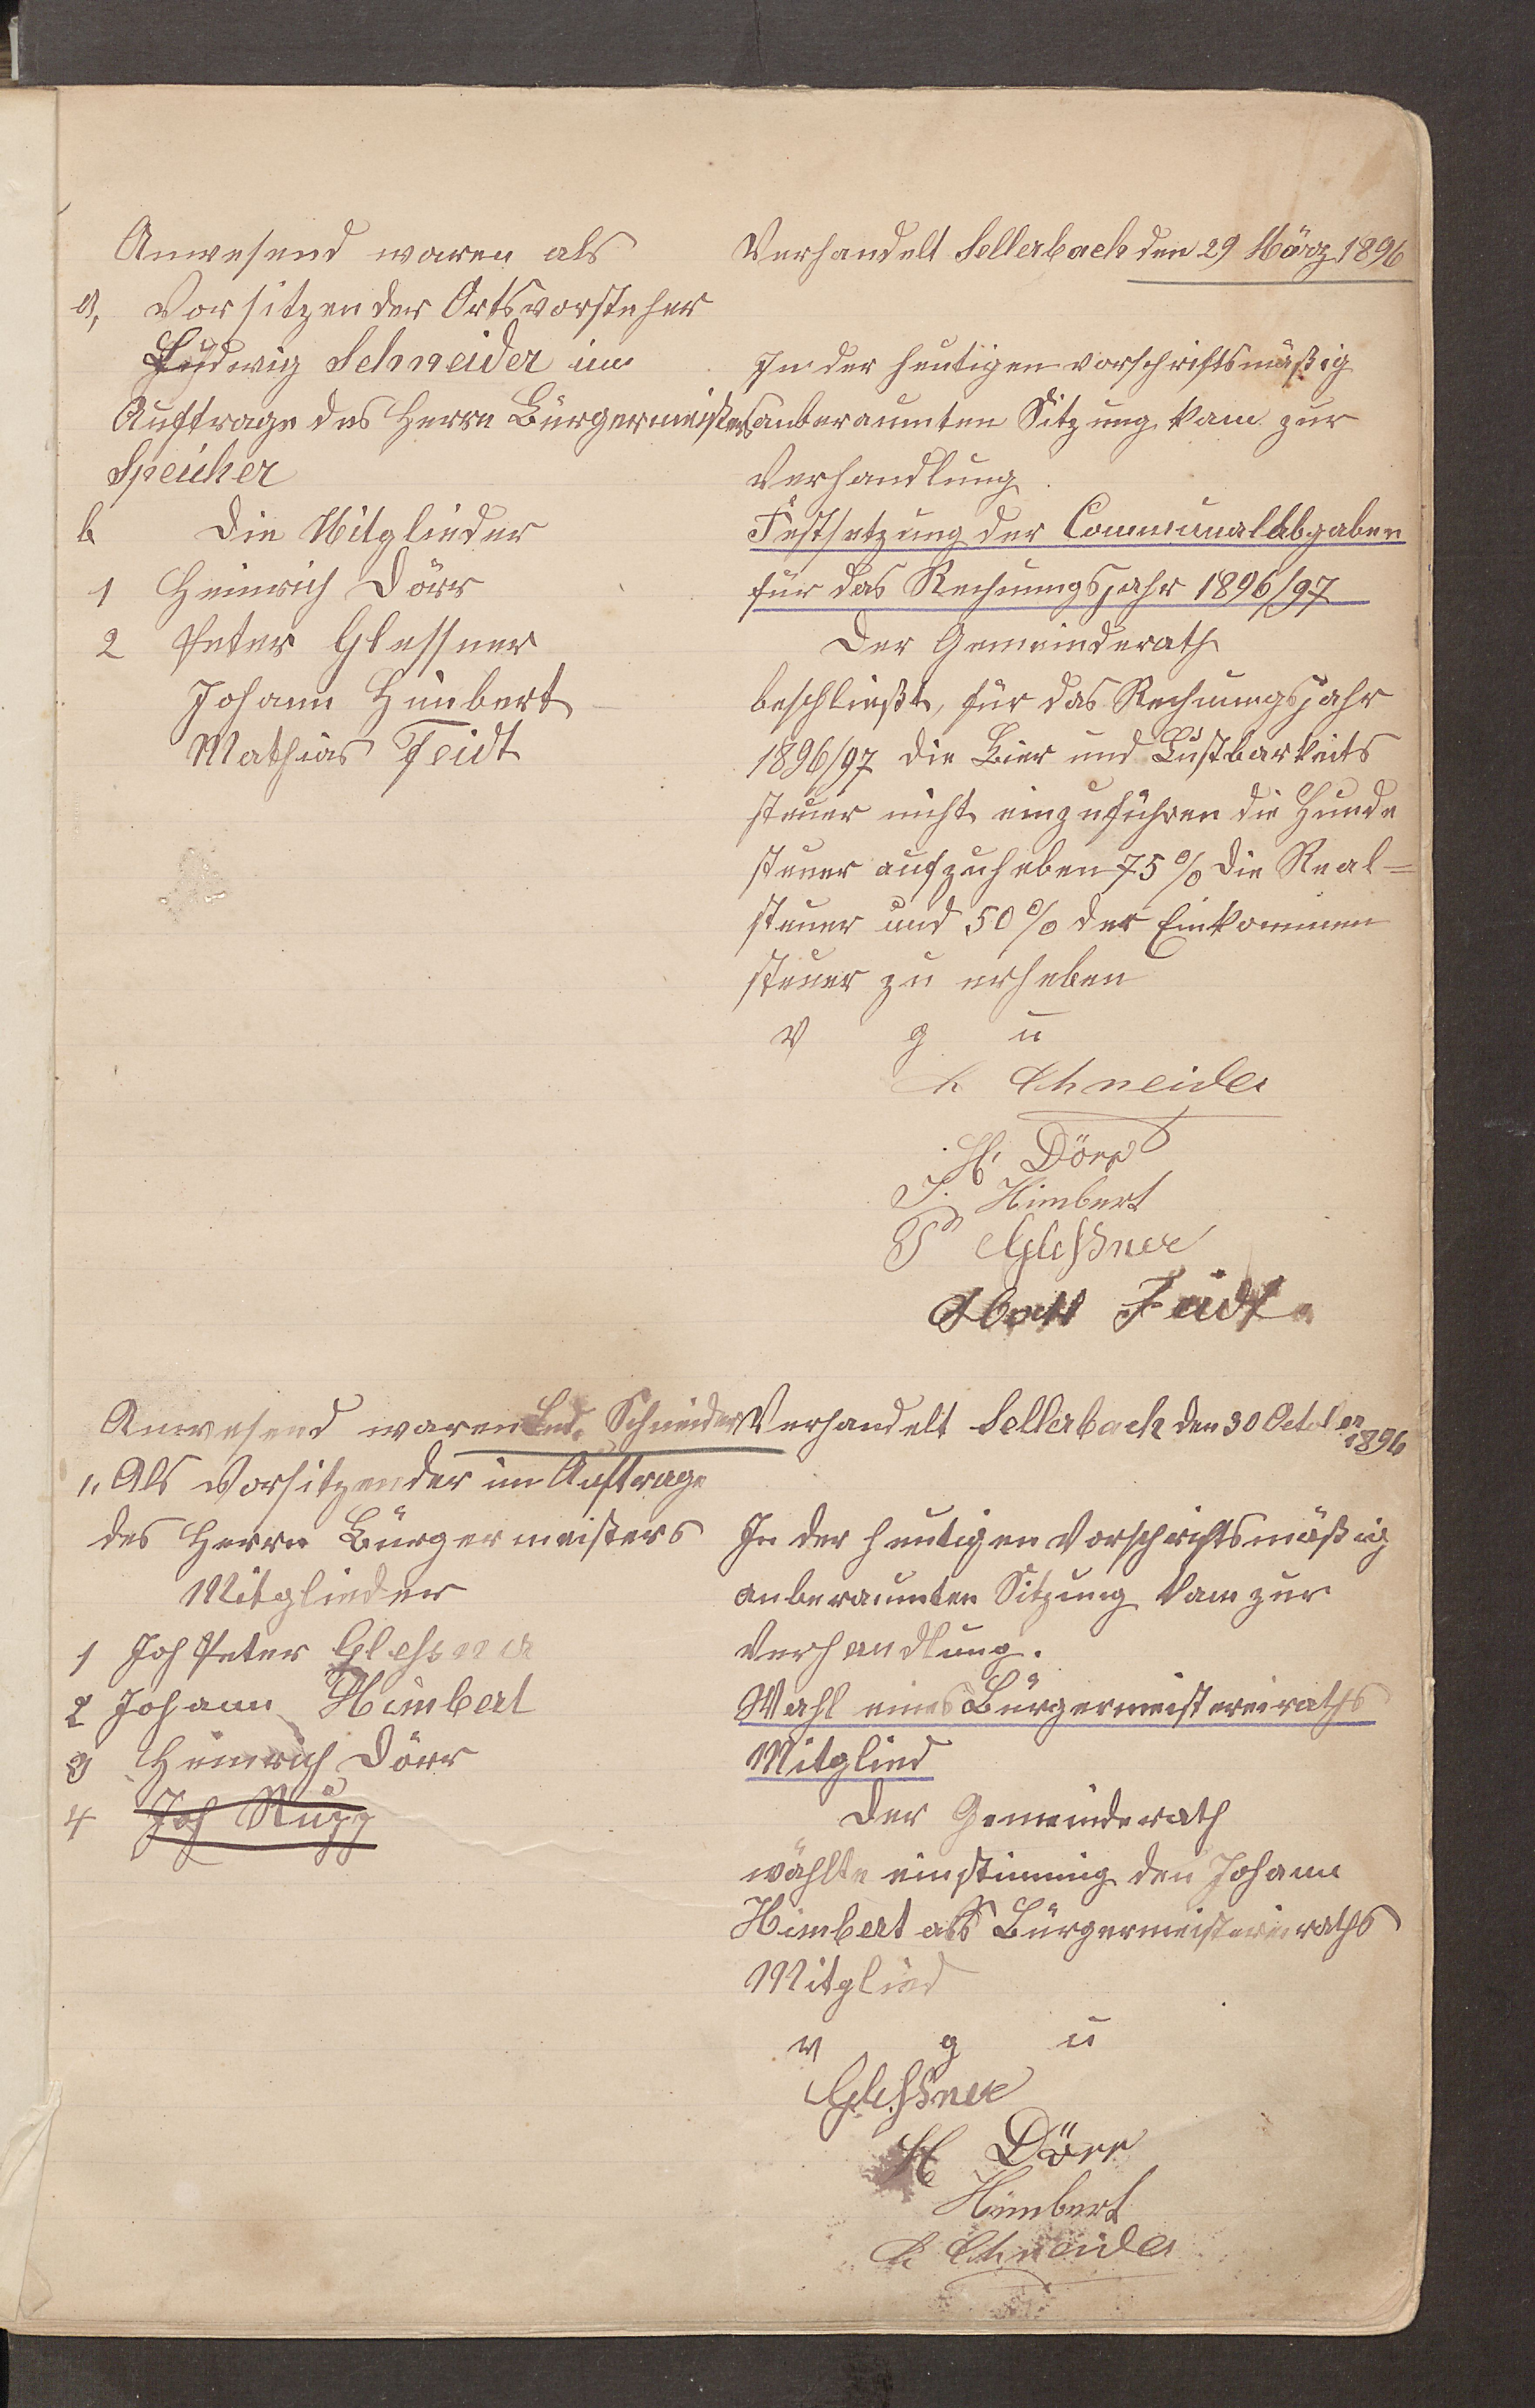 Anwesend waren als
a, Vorsitzender Ortsvorsteher
Ludwig Schneider im
Auftrage des Herrn Bürgermeisters
Speicher
b Die Mitglieder
1 Heinrich Dörr
2 Peter Glessner
Johann Himbert
Mathias Feidt
Verhandelt Sellerbach den 29 März 1896
In der heutigen vorschriftsmäßig
anberaumten Sitzung kam zur
Verhandlung.
Festsetzung der Communalabgaben
für das Rechnungsjahr 1896/97
Der Gemeinderath
beschließt, für das Rechnungsjahr
1896/97 die Bier und Lustbarkeits
steuer nicht einzuführen die Hunde
steuer aufzuheben 75% die Real=
steuer und 50% der Einkommen
steuer zu erheben
v g u
L Schneider
H. Dörr
J. Himbert
P Gleßner
Feidt
Anwesend waren Lud. Schneider
1. Als Vorsitzender im Auftrage
des Herrn Bürgermeisters
Mitglieder
1 Joh Peter Glessner
2 Johann Himbert
3 Heinrich Dörr
4 Joh Rupp
Verhandelt Sellerbach den 30 October 1896
In der heutigen Vorschriftsmäßig
anberaumten Sitzung kam zur
Verhandlung.
Wahl eines Bürgermeistereiraths
Mitglied
Der Gemeinderath
wählte einstimmig den Johann
Himbert als Bürgermeistereiraths
Mitglied
v g u
Gleßner
H Dörr
Himbert
L Schneider